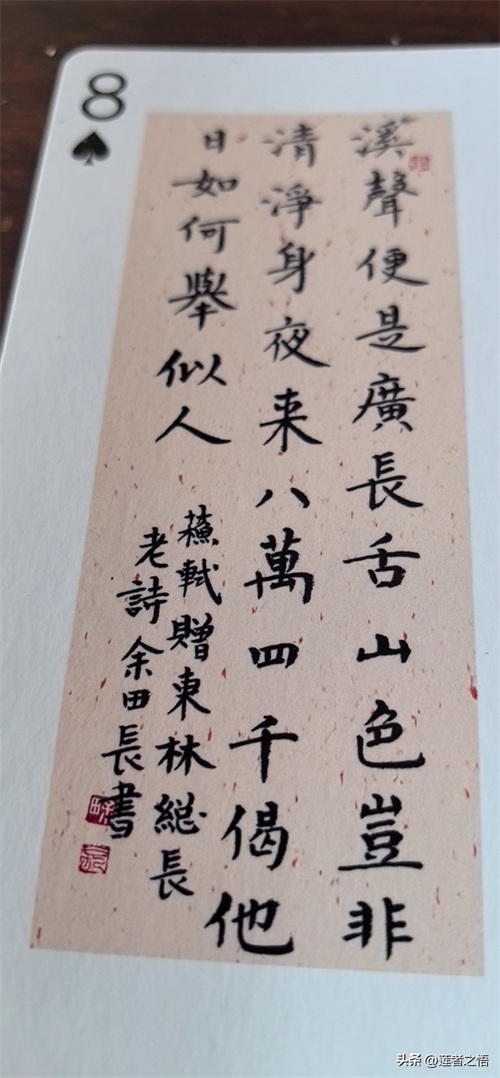 8
溪聲便是廣長舌山色豈非
清淨身夜来八萬四千偈他
日如何舉似人
蘓軾贈東林総長
老詩余田長書
头条 @莲者之悟